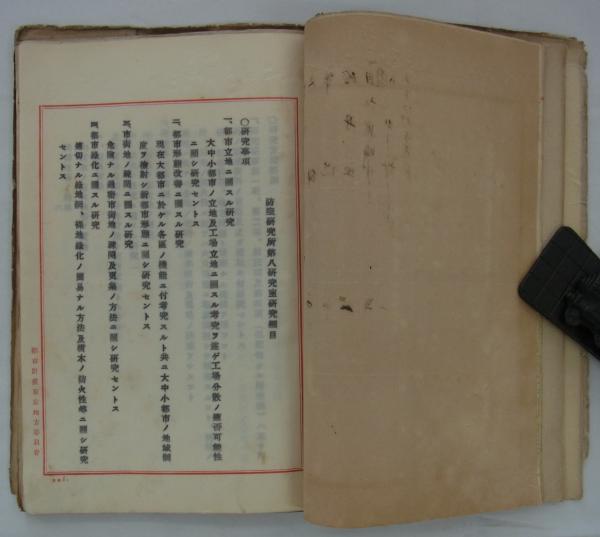 防空研究所第八研究室研究細目
〇研究事項
一、都市立地ニ關スル研究
大中小都市ノ立地及工場立地ニ關スル考究ヲ遂ゲ工場分散ノ 可能性
ニ關シ研究セントス
二、都市形態改善ニ關スル研究
現在大都市ニ於ケル各區ノ機能ニ付考究スルト共ニ大中小都市ノ地域制
度ヲ檢討シ新都市形態ニ關シ研究セントス
三、市街地ノ疎開ニ關スル研究
危險ナル過密市街地ノ疎開及更築ノ方法ニ關シ研究セントス
四、都市綠化ニ關スル研究
適切ナル綠地網、裸地綠化ノ簡易ナル方法及樹木ノ防火性等ニ關シ研究
セントス
都市計畫東京地方委員會